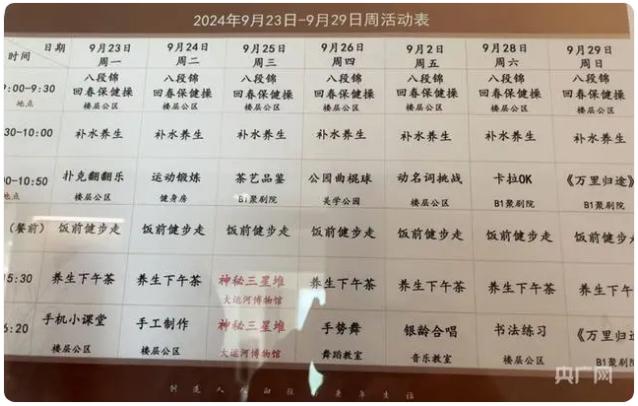 2024年9月23日-9月29日周活动表
日期 9月23日 9月24日 9月25日 9月26日 9月2日 9月28日 9月29日
时间 周一 周二 周三 周四 周五 周六 周日
9:00-9:30 八段锦 八段锦 八段锦 八段锦 八段锦 八段锦 八段锦
回春保健操 回春保健操 回春保健操 回春保健操 回春保健操 回春保健操 回春保健操
地点 楼层公区 楼层公区 楼层公区 楼层公区 楼层公区 楼层公区 楼层公区
30-10:00 补水养生 补水养生 补水养生 补水养生 补水养生 补水养生 补水养生
00-10:50 扑克翻翻乐 运动锻炼 茶艺品鉴 公园曲棍球 动名词挑战 卡拉OK 《万里归途》
地点 楼层公区 健身房 B1聚剧院 美学公园 楼层公区 B1聚剧院 B1聚剧院
(餐前) 饭前健步走 饭前健步走 饭前健步走 饭前健步走 饭前健步走 饭前健步走 饭前健步走
15:30 养生下午茶 养生下午茶 神秘三星堆 养生下午茶 养生下午茶 养生下午茶 养生下午茶
大运河博物馆
6:20 手机小课堂 手工制作 神秘三星堆 手势舞 银龄合唱 书法练习 《万里归途》
楼层公区 楼层公区 大运河博物馆 舞蹈教室 音乐教室 楼层公区 B1聚剧院
央广网